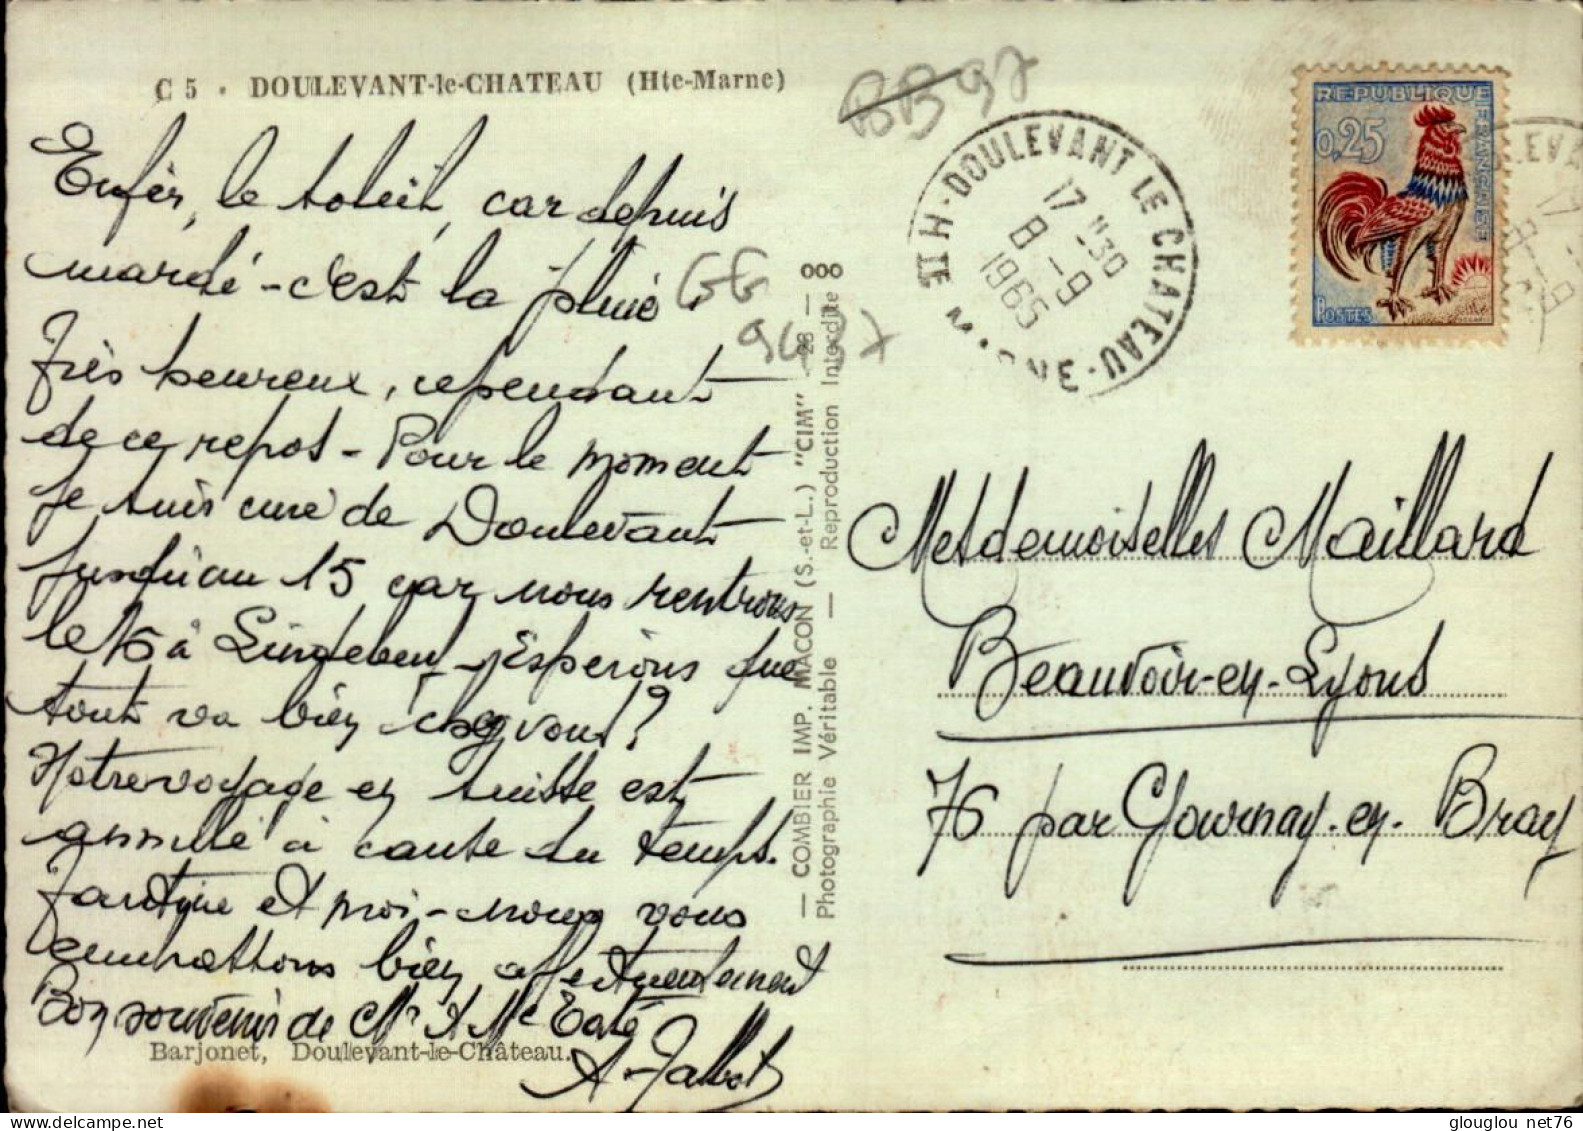 C 5 . DOULEVANT-le-CHATEAU (Hte-Marne)
BB97
Enfin, le soleil, car depuis
mardi - c'est la pluie.
Très heureux, cependant
de ce repos - Pour le moment
je suis curé de Doulevant
jusqu'au 15 car nous rentrons
le 16 à - J'espérons que
tout va bien chez vous?
Notre voyage en Suisse est
annulé à cause du temps.
et moi - nous vous
embrassons bien affectueusement
Bon souvenir de Mr & Me
A. Talbot
Barjonet, Doulevant-le-Château.
GG
9437
— COMBIER IMP. MACON (S.-et-L.) "CIM" — 28 — 000
Photographie Véritable — Reproduction Interdite
DOULEVANT LE CHATEAU - HTE MARNE
17 H 30
8 - 9
1965
REPUBLIQUE FRANÇAISE
0,25
POSTES
LEVA
17
Mesdemoiselles Maillard
Beauvoir-en-Lyons
76 par Gournay-en-Bray
glouglou net76